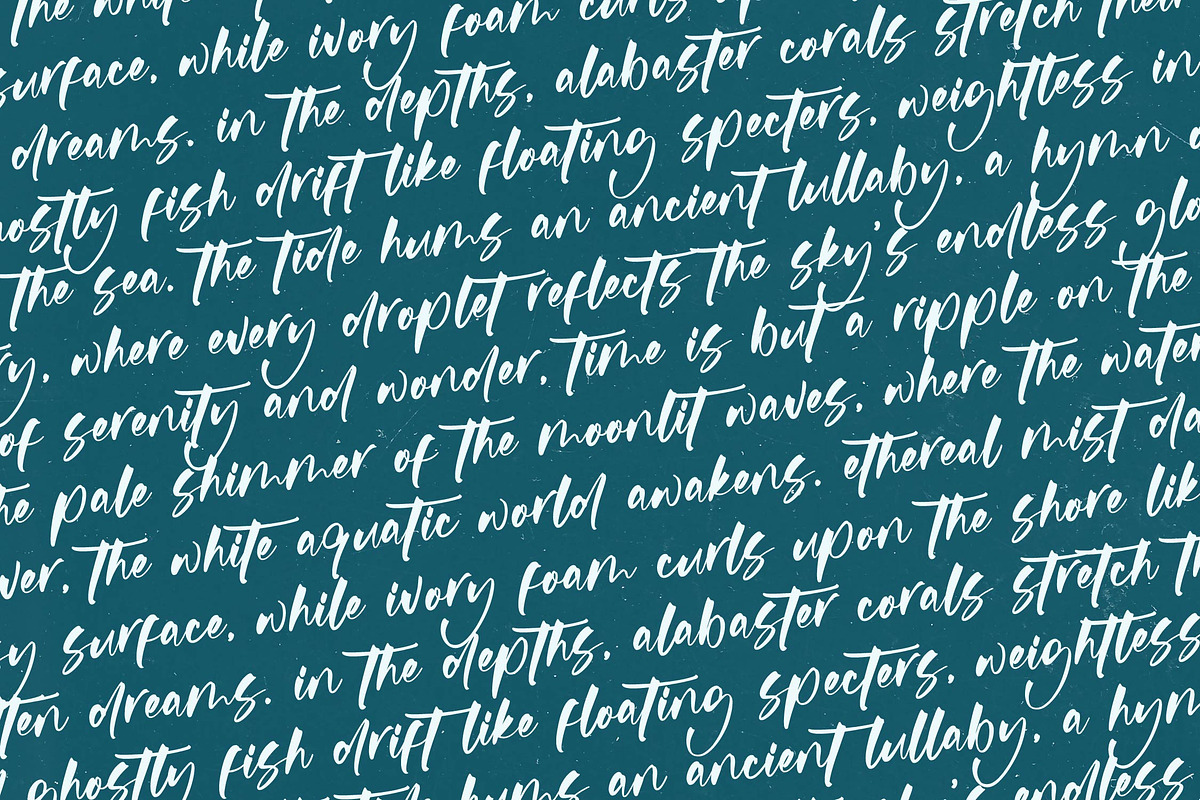 The
surface, while ivory foam curls
dreams. in the depths, alabaster corals stretch their
ghostly fish drift like floating specters, weightless in
the sea. The tide hums an ancient lullaby, a hymn
ry, where every droplet reflects the sky's endless glo
of serenity and wonder. Time is but a ripple on the
the pale shimmer of the moonlit waves, where the water
ver, the white aquatic world awakens. ethereal mist da
sy surface, while ivory foam curls upon the shore lik
ten dreams. in the depths, alabaster corals stretch th
ghostly fish drift like floating specters, weightless
tide hums an ancient lullaby, a hymn
sky's endless